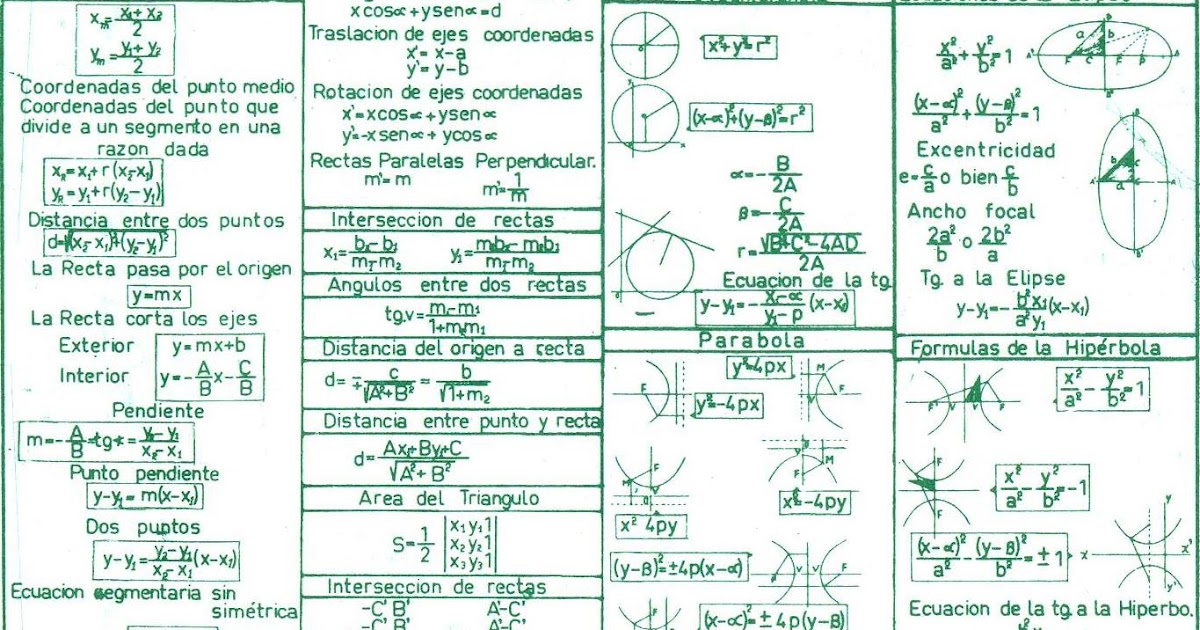 xₘ=(x₁+x₂)/2
yₘ=(y₁+y₂)/2
Coordenadas del punto medio
Coordenadas del punto que
divide a un segmento en una
razon dada
x_R=x₁+r(x₂-x₁)
y_R=y₁+r(y₂-y₁)
Distancia entre dos puntos
d=√(x₂-x₁)²+(y₂-y₁)²
La Recta pasa por el origen
y=mx
La Recta corta los ejes
Exterior y=mx+b
Interior y=-A/B x-C/B
Pendiente
m=-A/B=tg+=(y₂-y₁)/(x₂-x₁)
Punto pendiente
y-y₁=m(x-x₁)
Dos puntos
y-y₁=(y₂-y₁)/(x₂-x₁)(x-x₁)
Ecuacion segmentaria sin
simétrica
xcos∝+ysen∝=d
Traslacion de ejes coordenadas
x'=x-a
y'=y-b
Rotacion de ejes coordenadas
x'=xcos∝+ysen∝
y'=-xsen∝+ycos∝
Rectas Paralelas Perpendicular.
m'=m m'=1/m
Interseccion de rectas
x₁=(b₂-b₁)/(m₁-m₂) y₁=(m₁b₂-m₂b₁)/(m₁-m₂)
Angulos entre dos rectas
tg.v=(m₂-m₁)/(1+m₂m₁)
Distancia del origen a recta
d=c/∓√(A²+B²)=b/√(1+m₂)
Distancia entre punto y recta
d=(Ax₁+By₁+C)/√(A²+B²)
Area del Triangulo
S=1/2 |x₁ y₁ 1|
|x₂ y₂ 1|
|x₃ y₃ 1|
Interseccion de rectas
-C' B' A'-C'
-C' B' A'-C'
x²+y²=r²
(x-∝)²+(y-β)²=r²
∝=-B/2A
β=-C/2A
r=√(B²+C²-4AD)/2A
Ecuacion de la tg
y-y₁=-(x₁-∝)/(y₁-p)(x-x₁)
Parabola
y²=4px
y²=-4px
x² 4py
x²=-4py
(y-β)²=±4p(x-∝)
(x-∝)²=±4p(y-β)
x²/a²+y²/b²=1
(x-∝)²/a²+(y-β)²/b²=1
Excentricidad
e=c/a o bien c/b
Ancho focal
2a²/b o 2b²/a
Tg. a la Elipse
y-y₁=-b²x₁/a²y₁(x-x₁)
Formulas de la Hipérbola
x²/a²-y²/b²=1
x²/a²-y²/b²=-1
(x-∝)²/a²-(y-β)²/b²=±1
Ecuacion de la tg. a la Hiperbo.